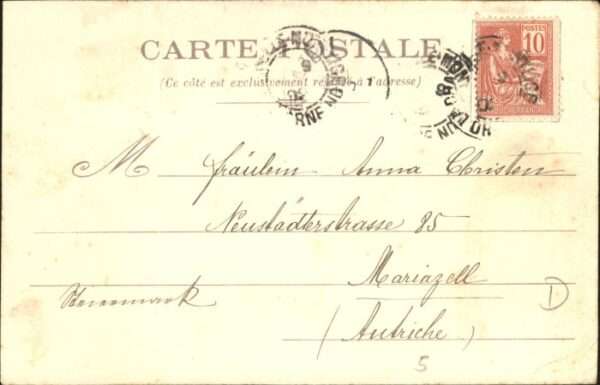 CARTE POSTALE
(Ce côté est exclusivement réservé à l'adresse)
POSTES
10
M fräulein Anna Christen
Neustädterstrasse 85
Mariazell
Steiermark
(Autriche)
D
5